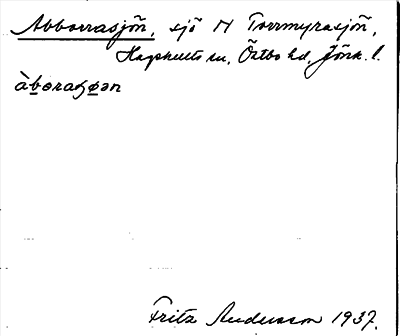 Abborrasjön, sjö N Torrmyrasjön,
Hagshults sn, Östbo hd, Jönk. l.
àbσraʂøən
Fritz Andersson 1937.